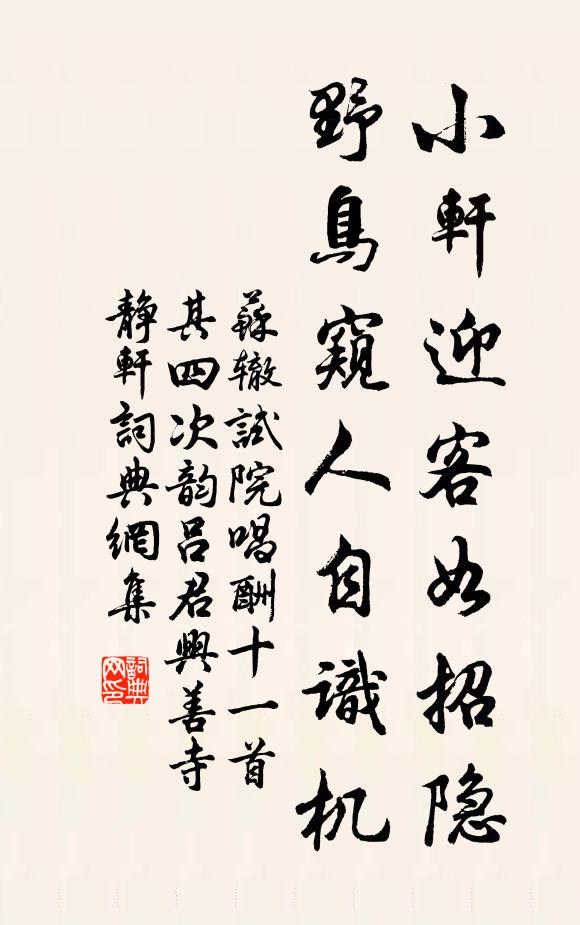 小軒迎客如招隐
野鳥窺人自識机
蘇辙試院唱酬十一首
其四次韵呂君興善寺
静軒詞典網集
詞典网印